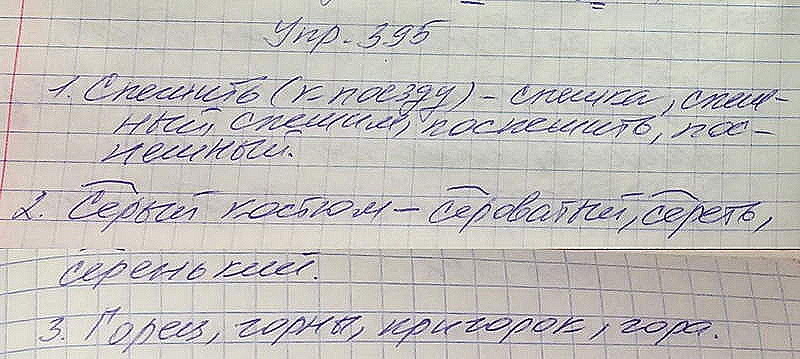 Упр. 395
1. Спешить (к поезду) - спешка, спеш-
ный, спешим, поспешить, пос-
пешный.
2. Серый костюм - сероватый, сереть,
серенький.
3. Горец, горны, пригорок, гора.